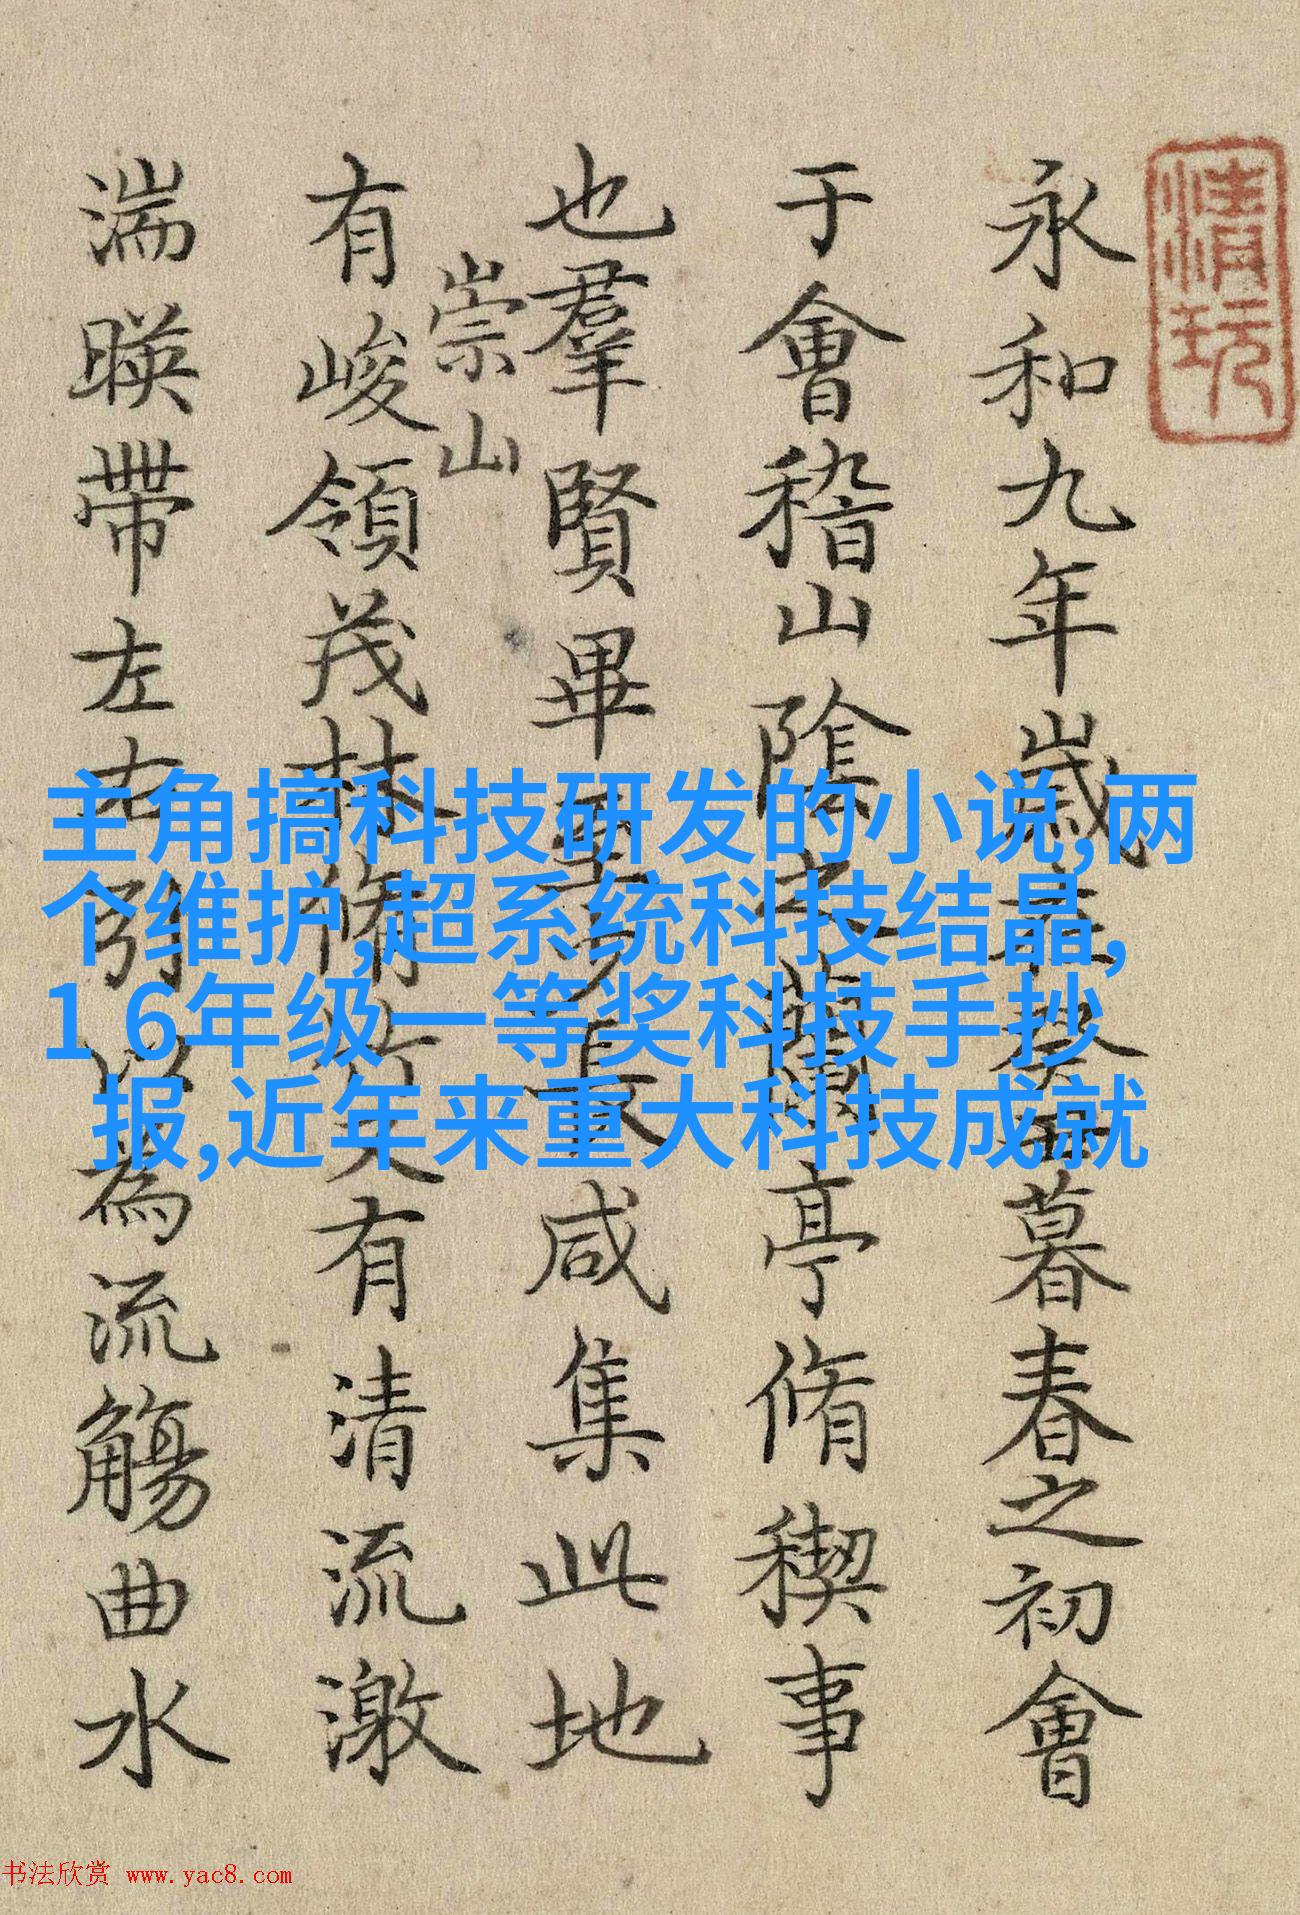 清玩
永和九年歲在癸丑暮春之初會
于會稽山陰之蘭亭脩稧事
也羣賢畢至少長咸集此地
崇山
有峻領茂林脩竹又有清流激
湍暎帶左右引以為流觴曲水
主角搞科技研发的小说,两
个维护,超系统科技结晶,
1 6年级一等奖科技手抄
报,近年来重大科技成就
书法欣赏 www.yac8.com